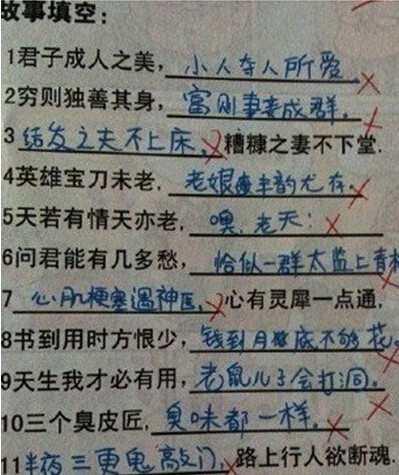 故事填空：
1君子成人之美，小人夺人所爱
2穷则独善其身，富则妻妾成群。
3结发之夫不上床，糟糠之妻不下堂.
4英雄宝刀未老，老娘丰韵尤存.
5天若有情天亦老，噢，老天！
6问君能有几多愁，恰似一群太监上青楼
7心肌梗塞遇神医，心有灵犀一点通，
8书到用时方恨少，钱到月底不够花。
9天生我才必有用，老鼠儿子会打洞。
10三个臭皮匠，臭味都一样。
11半夜三更鬼敲门，路上行人欲断魂.